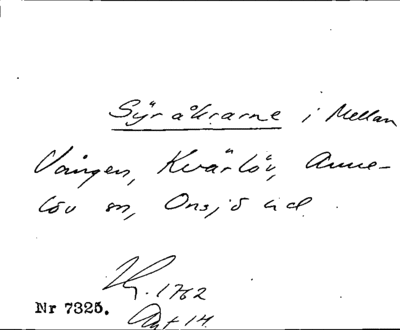 Syråkrarne i Mellan
Vången, Kvärlöv, Anne-
löv sn, Onsjö hd.
1762
Akt 14.
Nr 7325.